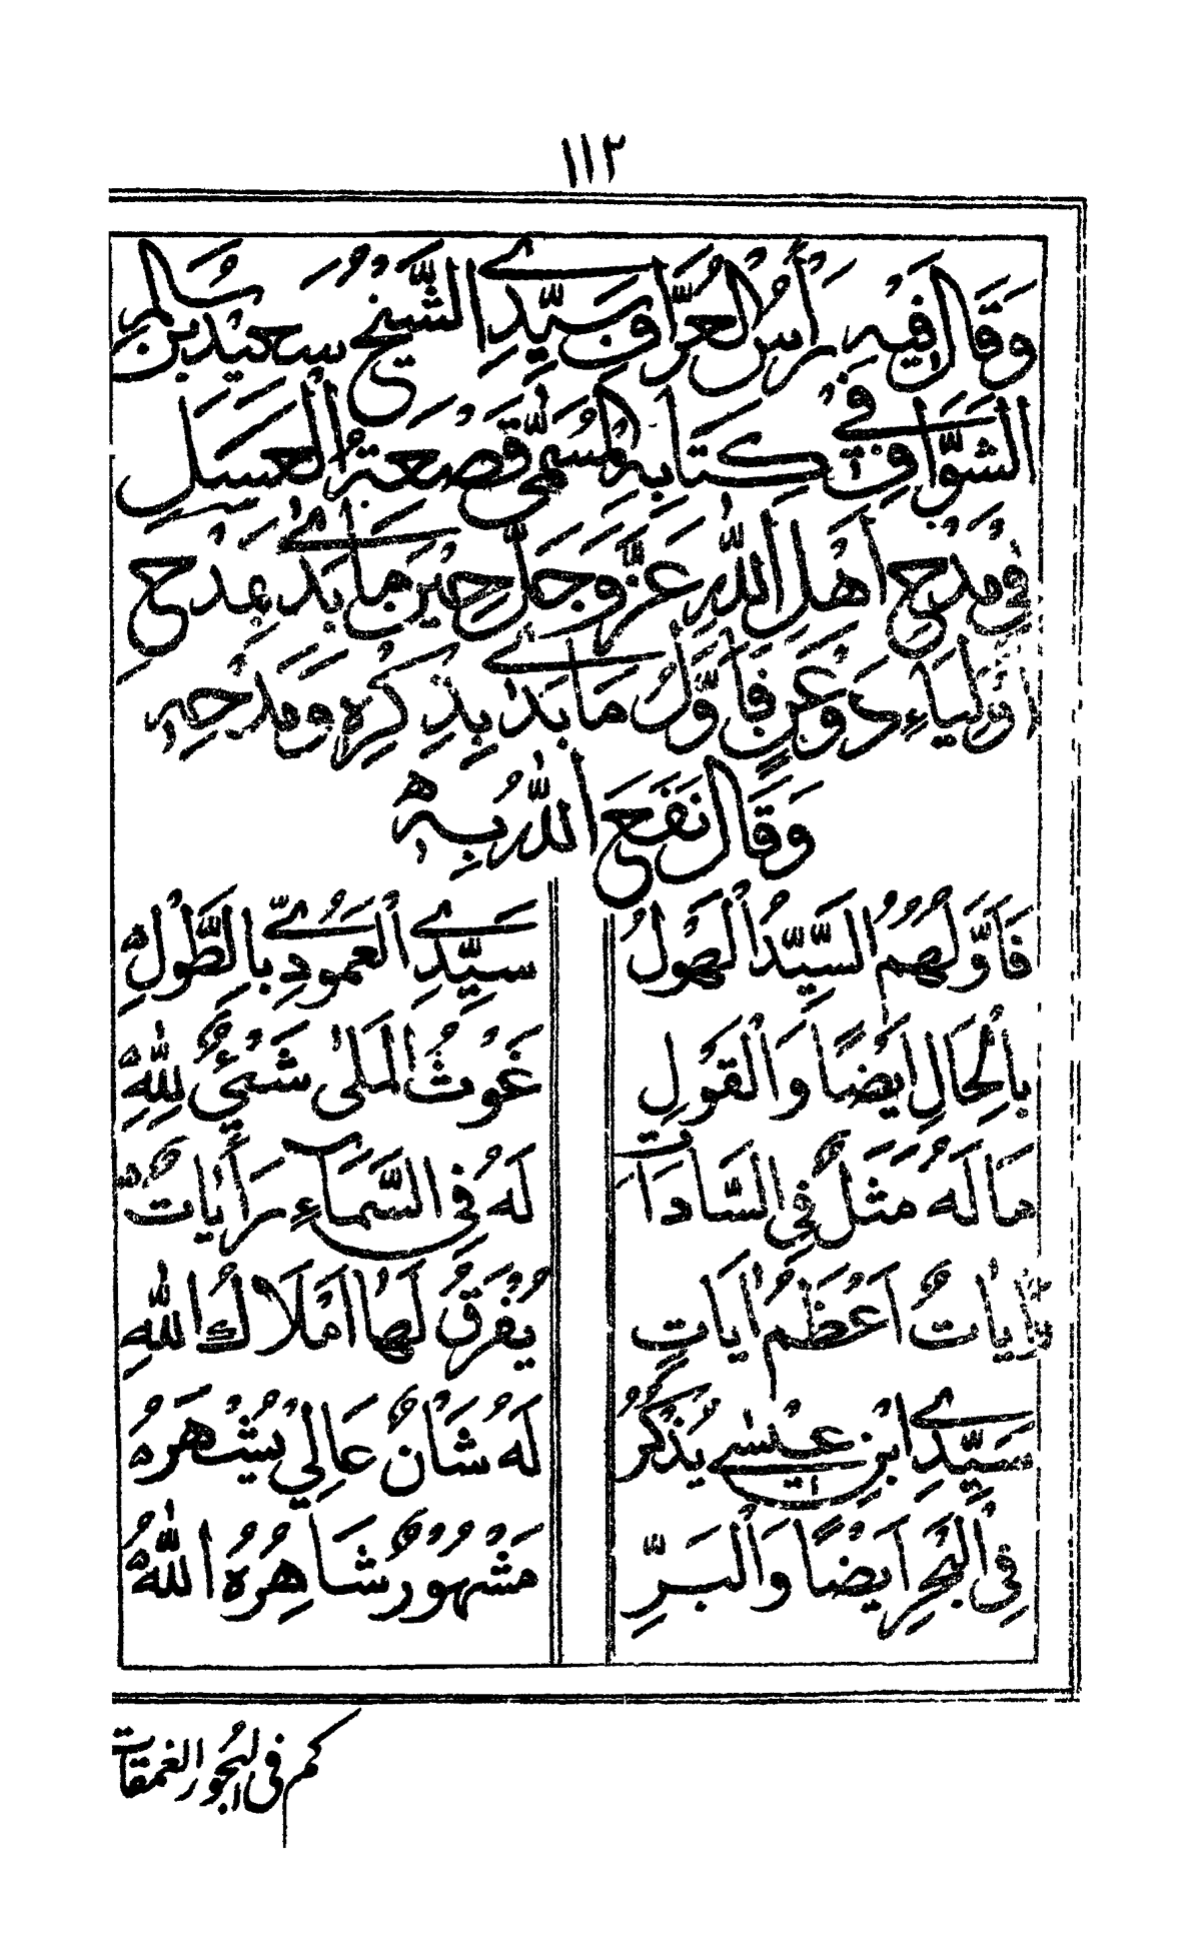 ١١٢
وَقَالَ فِيْهِ رَأْسُ الْعُرَّافِ سَيِّدِي الشَّيْخُ سَعِيْدِ بْنِ سَالِمِ
الشَّوَّافِ فِي كِتَابِهِ الْمُسَمَّى قَصْعَةُ الْعَسَلِ
فِي مَدْحِ اَهْلِ اللّٰهِ عَزَّ وَجَلَّ حِيْنَ مَا بَدَى بِمَدْحِ
اَوْلِيَاءِ دَوْعَنٍ فَاَوَّلُ مَا بَدَى بِذِكْرِهِ وَمَدْحِهِ
وَقَالَ نَفَعَ اللّٰهُ بِهِ
فَاَوَّلُهُمُ السَّيِّدُ الْهَوْلُ سَيِّدِي الْعَمُودِيُّ بِالطَّوْلِ
بِالْحَالِ اَيْضًا وَالْقَوْلِ غَوْثُ الْمَلٰى شَيْئٌ لِلّٰهِ
مَا لَهُ مَثَلٌ فِي السَّادَاتْ لَهُ فِي السَّمَاءِ رَايَاتٌ
رَايَاتٌ اَعْظَمُ اٰيَاتٍ يُفْرَقُ لَهَا اَمْلَاكُ اللّٰهِ
سَيِّدِي ابْنِ عِيْسٰى يُذْكَرُ لَهُ شَانٌ عَالِي يُشْهَرُهُ
فِي الْبَحْرِ اَيْضًا وَالْبَرِّ مَشْهُورٌ شَاهِرُهُ اللّٰهُ
كم في البحور الغمقات